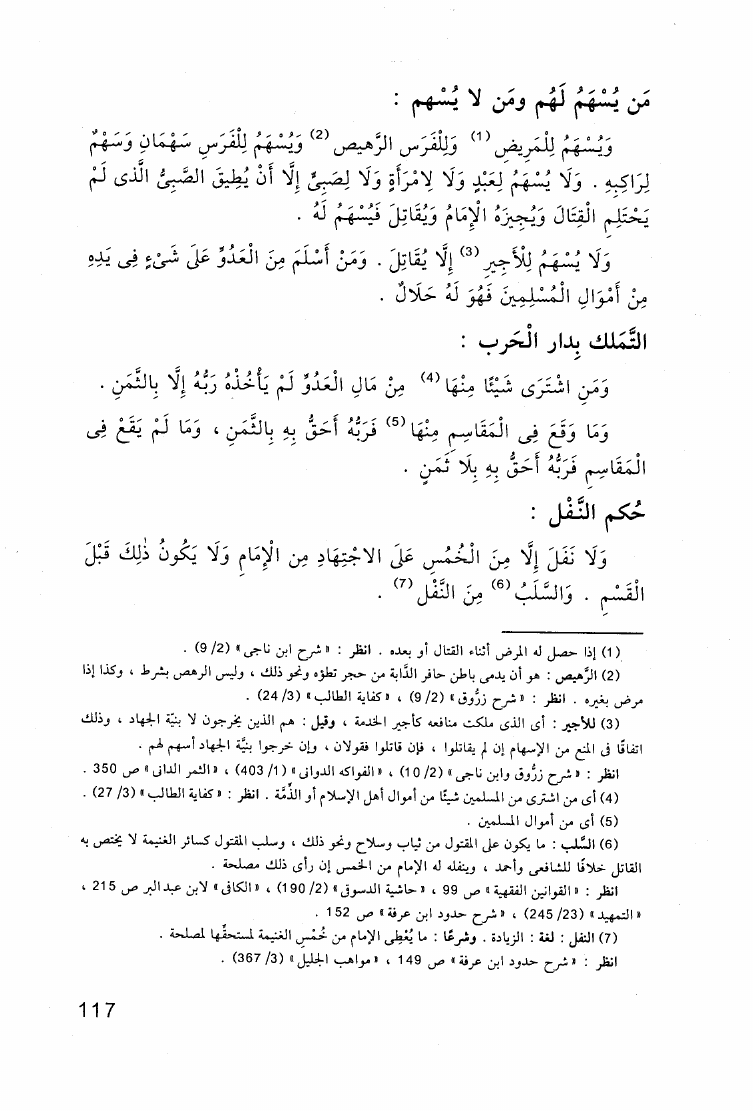 مَن يُسْهَمُ لَهُم ومَن لا يُسْهم :
وَيُسْهَمُ لِلْمَرِيضِ (1) وَلِلْفَرَسِ الرَّهِيصِ (2) وَيُسْهَمُ لِلْفَرَسِ سَهْمَانِ وَسَهْمٌ
لِرَاكِبِهِ . وَلَا يُسْهَمُ لِعَبْدٍ وَلَا لِامْرَأَةٍ وَلَا لِصَبِىٍّ إِلَّا أَنْ يُطِيقَ الصَّبِىُّ الَّذى لَمْ
يَحْتَلِمِ الْقِتَالَ وَيُجِيزَهُ الْإِمَامُ وَيُقَاتِلَ فَيُسْهَمُ لَهُ .
وَلَا يُسْهَمُ لِلْأَجِيرِ (3) إِلَّا يُقَاتِلَ . وَمَنْ أَسْلَمَ مِنَ الْعَدُوِّ عَلَى شَىْءٍ فِى يَدِهِ
مِنْ أَمْوَالِ الْمُسْلِمِينَ فَهُوَ لَهُ حَلَالٌ .
التَّمَلك بِدار الْحَرب :
وَمَنِ اشْتَرَى شَيْئًا مِنْهَا (4) مِنْ مَالِ الْعَدُوِّ لَمْ يَأْخُذْهُ رَبُّهُ إِلَّا بِالثَّمَنِ .
وَمَا وَقَعَ فِى الْمَقَاسِمِ مِنْهَا (5) فَرَبُّهُ أَحَقُّ بِهِ بِالثَّمَنِ ، وَمَا لَمْ يَقَعْ فِى
الْمَقَاسِمِ فَرَبُّهُ أَحَقُّ بِهِ بِلَا ثَمَنٍ .
حُكم النَّفْل :
وَلَا نَفَلَ إِلَّا مِنَ الْخُمُسِ عَلَى الاجْتِهَادِ مِنَ الْإِمَامِ وَلَا يَكُونُ ذٰلِكَ قَبْلَ
الْقَسْمِ . وَالسَّلَبُ (6) مِنَ النَّفْلِ (7) .
(1) إذا حصل له المرض أثناء القتال أو بعده . انظر : « شرح ابن ناجى » (2/ 9) .
(2) الرَّهيص : هو أن يدمى باطن حافر الدَّابة من حجر تطؤه ونحو ذلك ، وليس الرهص بشرط ، وكذا إذا
مرض بغيره . انظر : « شرح زرُّوق » (2/ 9) ، « كفاية الطالب » (3/ 24) .
(3) للأجير : أى الذى ملكت منافعه كأجير الخدمة ، وقيل : هم الذين يخرجون لا بنيَّة الجهاد ، وذلك
اتفاقًا فى المنع من الإسهام إن لم يقاتلوا ، فإن قاتلوا فقولان ، وإن خرجوا بنيَّة الجهاد أسهم لهم .
انظر : « شرح زرُّوق وابن ناجى » (2/ 10) ، « الفواكه الدوانى » (1/ 403) ، « الثمر الدانى » ص 350 .
(4) أى من اشترى من المسلمين شيئًا من أموال أهل الإسلام أو الذِّمَّة . انظر : « كفاية الطالب » (3/ 27) .
(5) أى من أموال المسلمين .
(6) السَّلب : ما يكون على المقتول من ثياب وسلاح ونحو ذلك ، وسلب المقتول كسائر الغنيمة لا يختص به
القاتل خلافًا للشافعى وأحمد ، وينفله له الإمام من الخمس إن رأى ذلك مصلحة .
انظر : « القوانين الفقهية » ص 99 ، « حاشية الدسوقى » (2/ 190) ، « الكافى » لابن عبد البر ص 215 ،
« التمهيد » (23/ 245) ، « شرح حدود ابن عرفة » ص 152 .
(7) النفل : لغة : الزيادة . وشرعًا : ما يُعْطِى الإمام من خُمْسِ الغنيمة لمستحقِّها لمصلحة .
انظر : « شرح حدود ابن عرفة » ص 149 ، « مواهب الجليل » (3/ 367) .
117